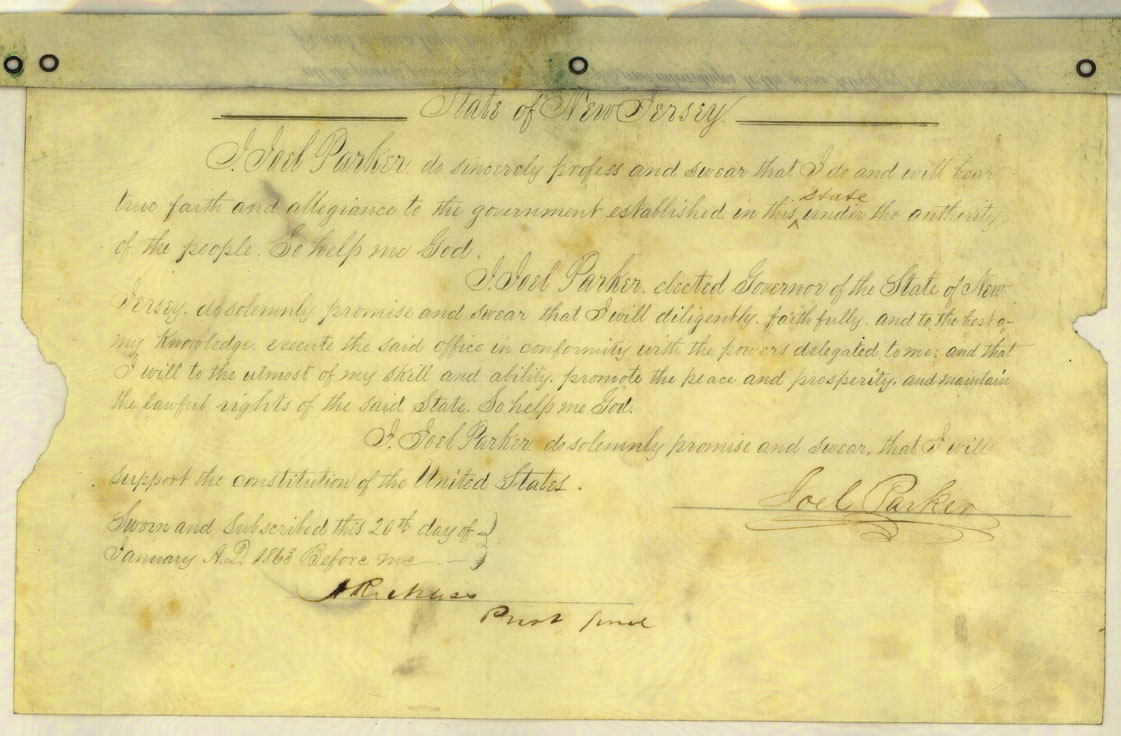 State of New Jersey.
I. Joel Parker. do sincerely profess and swear that I do and will bear
true faith and allegiance to the government established in this state under the authority
of the people. So help me God.
I. Joel Parker. elected Governor of the State of New
Jersey. do solemnly promise and swear that I will diligently. faithfully. and to the best of
my Knowledge. execute the said office in conformity with the powers delegated to me; and that
I will to the utmost of my skill and ability. promote the peace and prosperity, and maintain
the lawful rights of the said State. So help me God.
I. Joel Parker. do solemnly promise and swear, that I will
support the constitution of the United States.
Joel Parker
Sworn and Subscribed this 20th day of
January A.D. 1863 Before me